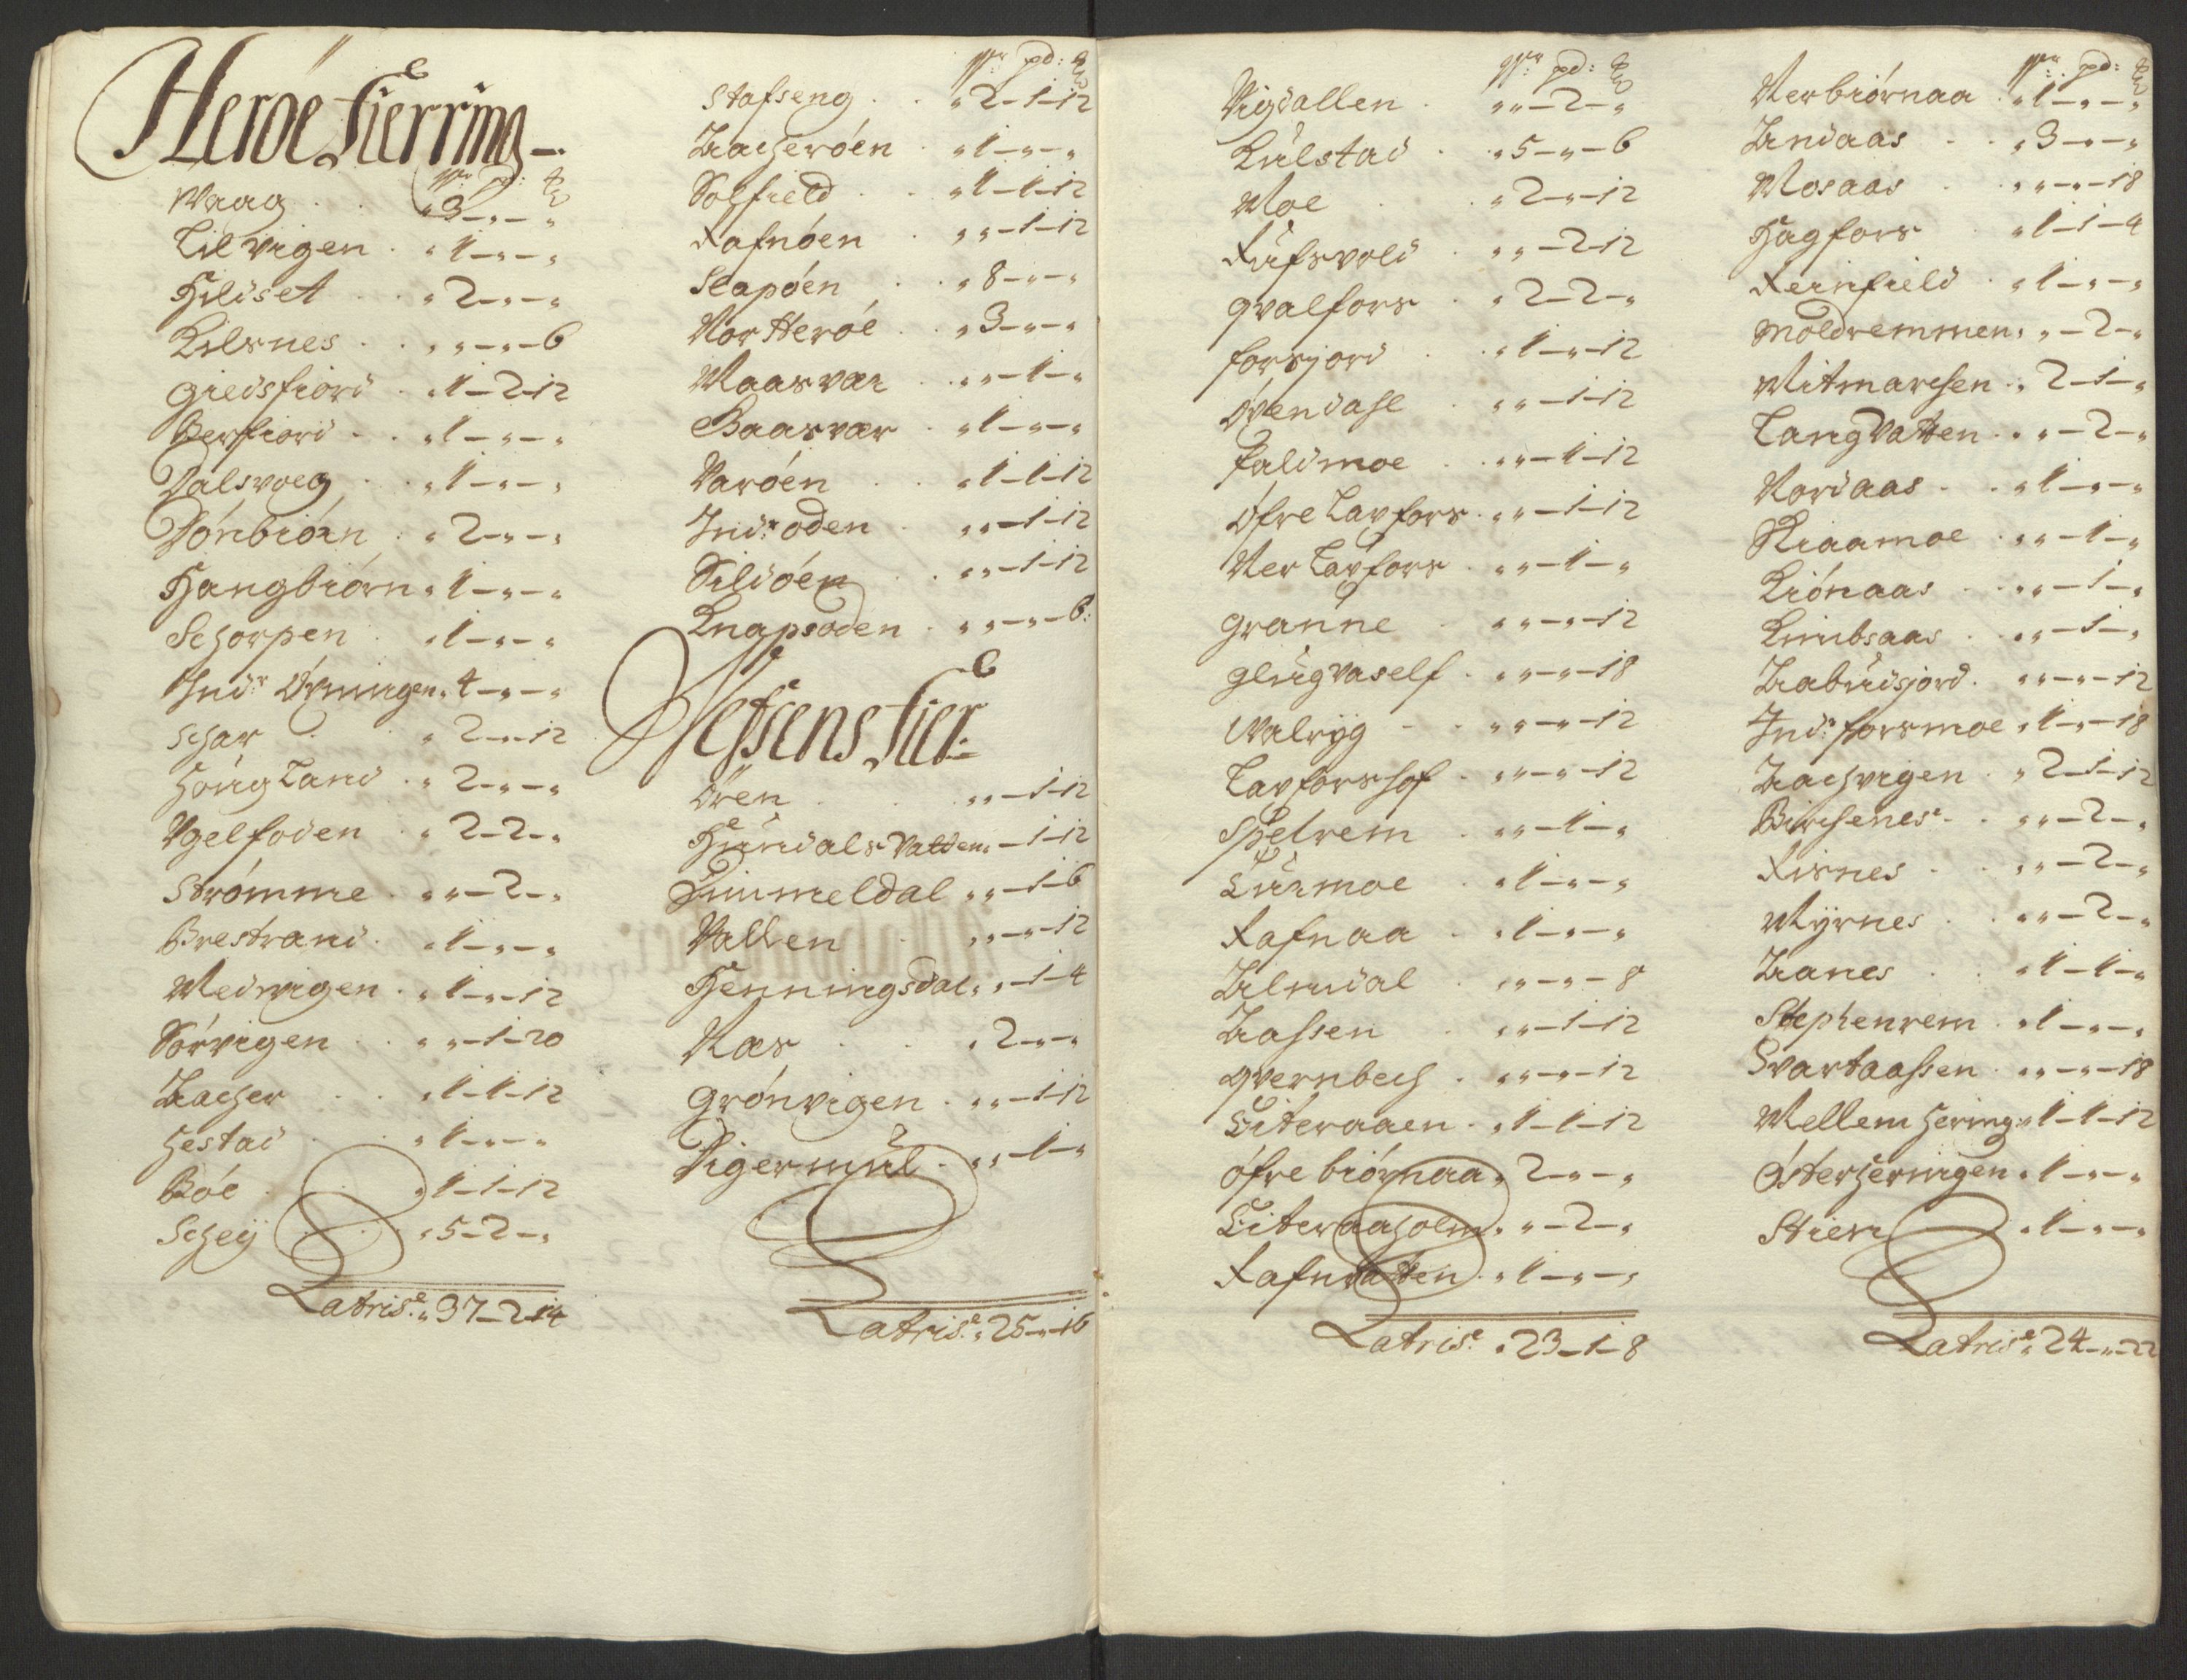 Heroe Fierring
Wog: pd: ℔
Waag . . „ 3 – „ – „
Lil Vigen . „ 1 – „ – „
Hildset . . „ 2 – „ – „
Kilsnes . . „ „ – „ – 6
Giedsfiord . „ 1 – 2 – 12
Berfiord . . „ 1 – „ – „
Dalsvoeg . . „ 1 – „ – „
Tónbiórn . „ 2 – „ – „
Hangbiórn „ 1 – „ – „
Schorpen . „ 1 – „ – „
Indr Øÿningen „ 4 – „ – „
Schar . . „ 2 – „ – 12
Hóugland . „ 2 – „ – „
Vgelfoden . „ 2 – 2 – „
Strómme . „ „ – 2 – „
Brestrand . „ 1 – „ – „
Medvigen . „ 1 – „ – 12
Sórvigen . . „ „ – 1 – 20
Aacher . . „ 1 – 1 – 12
Hestad . . „ 1 – „ – „
Bóe . . „ 1 – 1 – 12
Scheÿ . . „ 5 – 2 – „
Latris.e „ 37 – 2 – 14
pd: ℔
Stafseng . . „ 2 – 1 – 12
Aacheróen . „ 1 – „ – „
Solfield . . „ 1 – 1 – 12
Rafnóen . „ „ – 1 – 12
Slapóen . . „ 8 – „ – „
Nor Heróe . . „ 3 – „ – „
Maasvær . „ „ – 1 – „
Baasvær . „ 1 – „ – „
Varóen . . „ 1 – 1 – 12
Indr: oden . „ „ – 1 – 12
Sildóen . . „ „ – 1 – 12
Knapsoden . „ „ – „ – 6:
Vefsens Fier:
Óren . . „ „ – 1 – 12
Hundals Vatten „ – 1 – 12
Simmeldal „ „ – 1 – 6
Vallen . „ „ – „ – 12
Henningsdal „ „ – 1 – 4
Næs . . „ 2 – „ – „
Grónvigen . „ „ – 1 – 12
Tigermúl . „ „ – 1 – „
Latris.e „ 25 – „ – 16
pd: ℔
Vigdallen . „ „ – 2 – „
Kulstad . . „ 5 – „ – 6
Moe . . „ 2 – „ – 12
Rúfsvold . „ „ – 2 – 12
Qvalfors . „ 2 – 2 – „
Forsjord . „ 1 – „ – 12
Óvendahl . „ „ – 1 – 12
Faldmoe . „ „ – 1 – 12
Ófre Lavfors . „ „ – 1 – 12
Ner Lavfors . „ „ – 1 – „
Granne . „ „ – „ – 12
Glugvaself . „ „ – „ – 18
Walrÿg . . „ „ – „ – 12
Lavforshof . „ „ – „ – 12
Speltrem . „ „ – 1 – „
Lurmoe . „ 1 – „ – „
Rafnaa . „ 1 – „ – „
Almdal . „ „ – „ – 8
Aassen . „ „ – 1 – 12
Qvernbech . „ „ – „ – 12
Literaaen . „ 1 – 1 – 12
Ófre biórnaa „ 2 – „ – „
Literaaholm „ „ – 2 – „
Rafnvatten . „ 1 – „ – „
Latris.e „ 23 – 1 – 8
pd: ℔
Nerbiórnaa . „ 1 – „ – „
Andaas . . „ 3 – „ – „
Mosaas . „ „ – „ – 18
Hagfors . „ 1 – 1 – 4
Reinfield . „ 1 – „ – „
Moldremmen „ „ – 2 – „
Mitmarchen „ 2 – 1 – „
Langvatten . „ „ – 2 – „
Nordaas . . „ 1 – „ – „
Kiaamoe . „ „ – 1 – „
Kiónaas . . „ „ – 1 – „
Knubsaas . „ „ – 1 – „
Aabudsjord . „ „ – „ – 12
Indr: forsmoe „ 1 – „ – 18
Aachvigen . „ 2 – 1 – 12
Birchenes . „ „ – 2 – „
Risnes . . „ „ – 2 – „
Mÿrnes . . „ „ – 2 – „
Aanes . . „ 1 – 1 – „
Stephenrem . „ 1 – „ – „
Svartaassen . „ „ – „ – 18
Mellem hering „ 1 – 1 – 12
Ósterheringen „ 1 – „ – „
Stien . . „ 1 – „ – „
Latris.e „ 24 – „ – 22